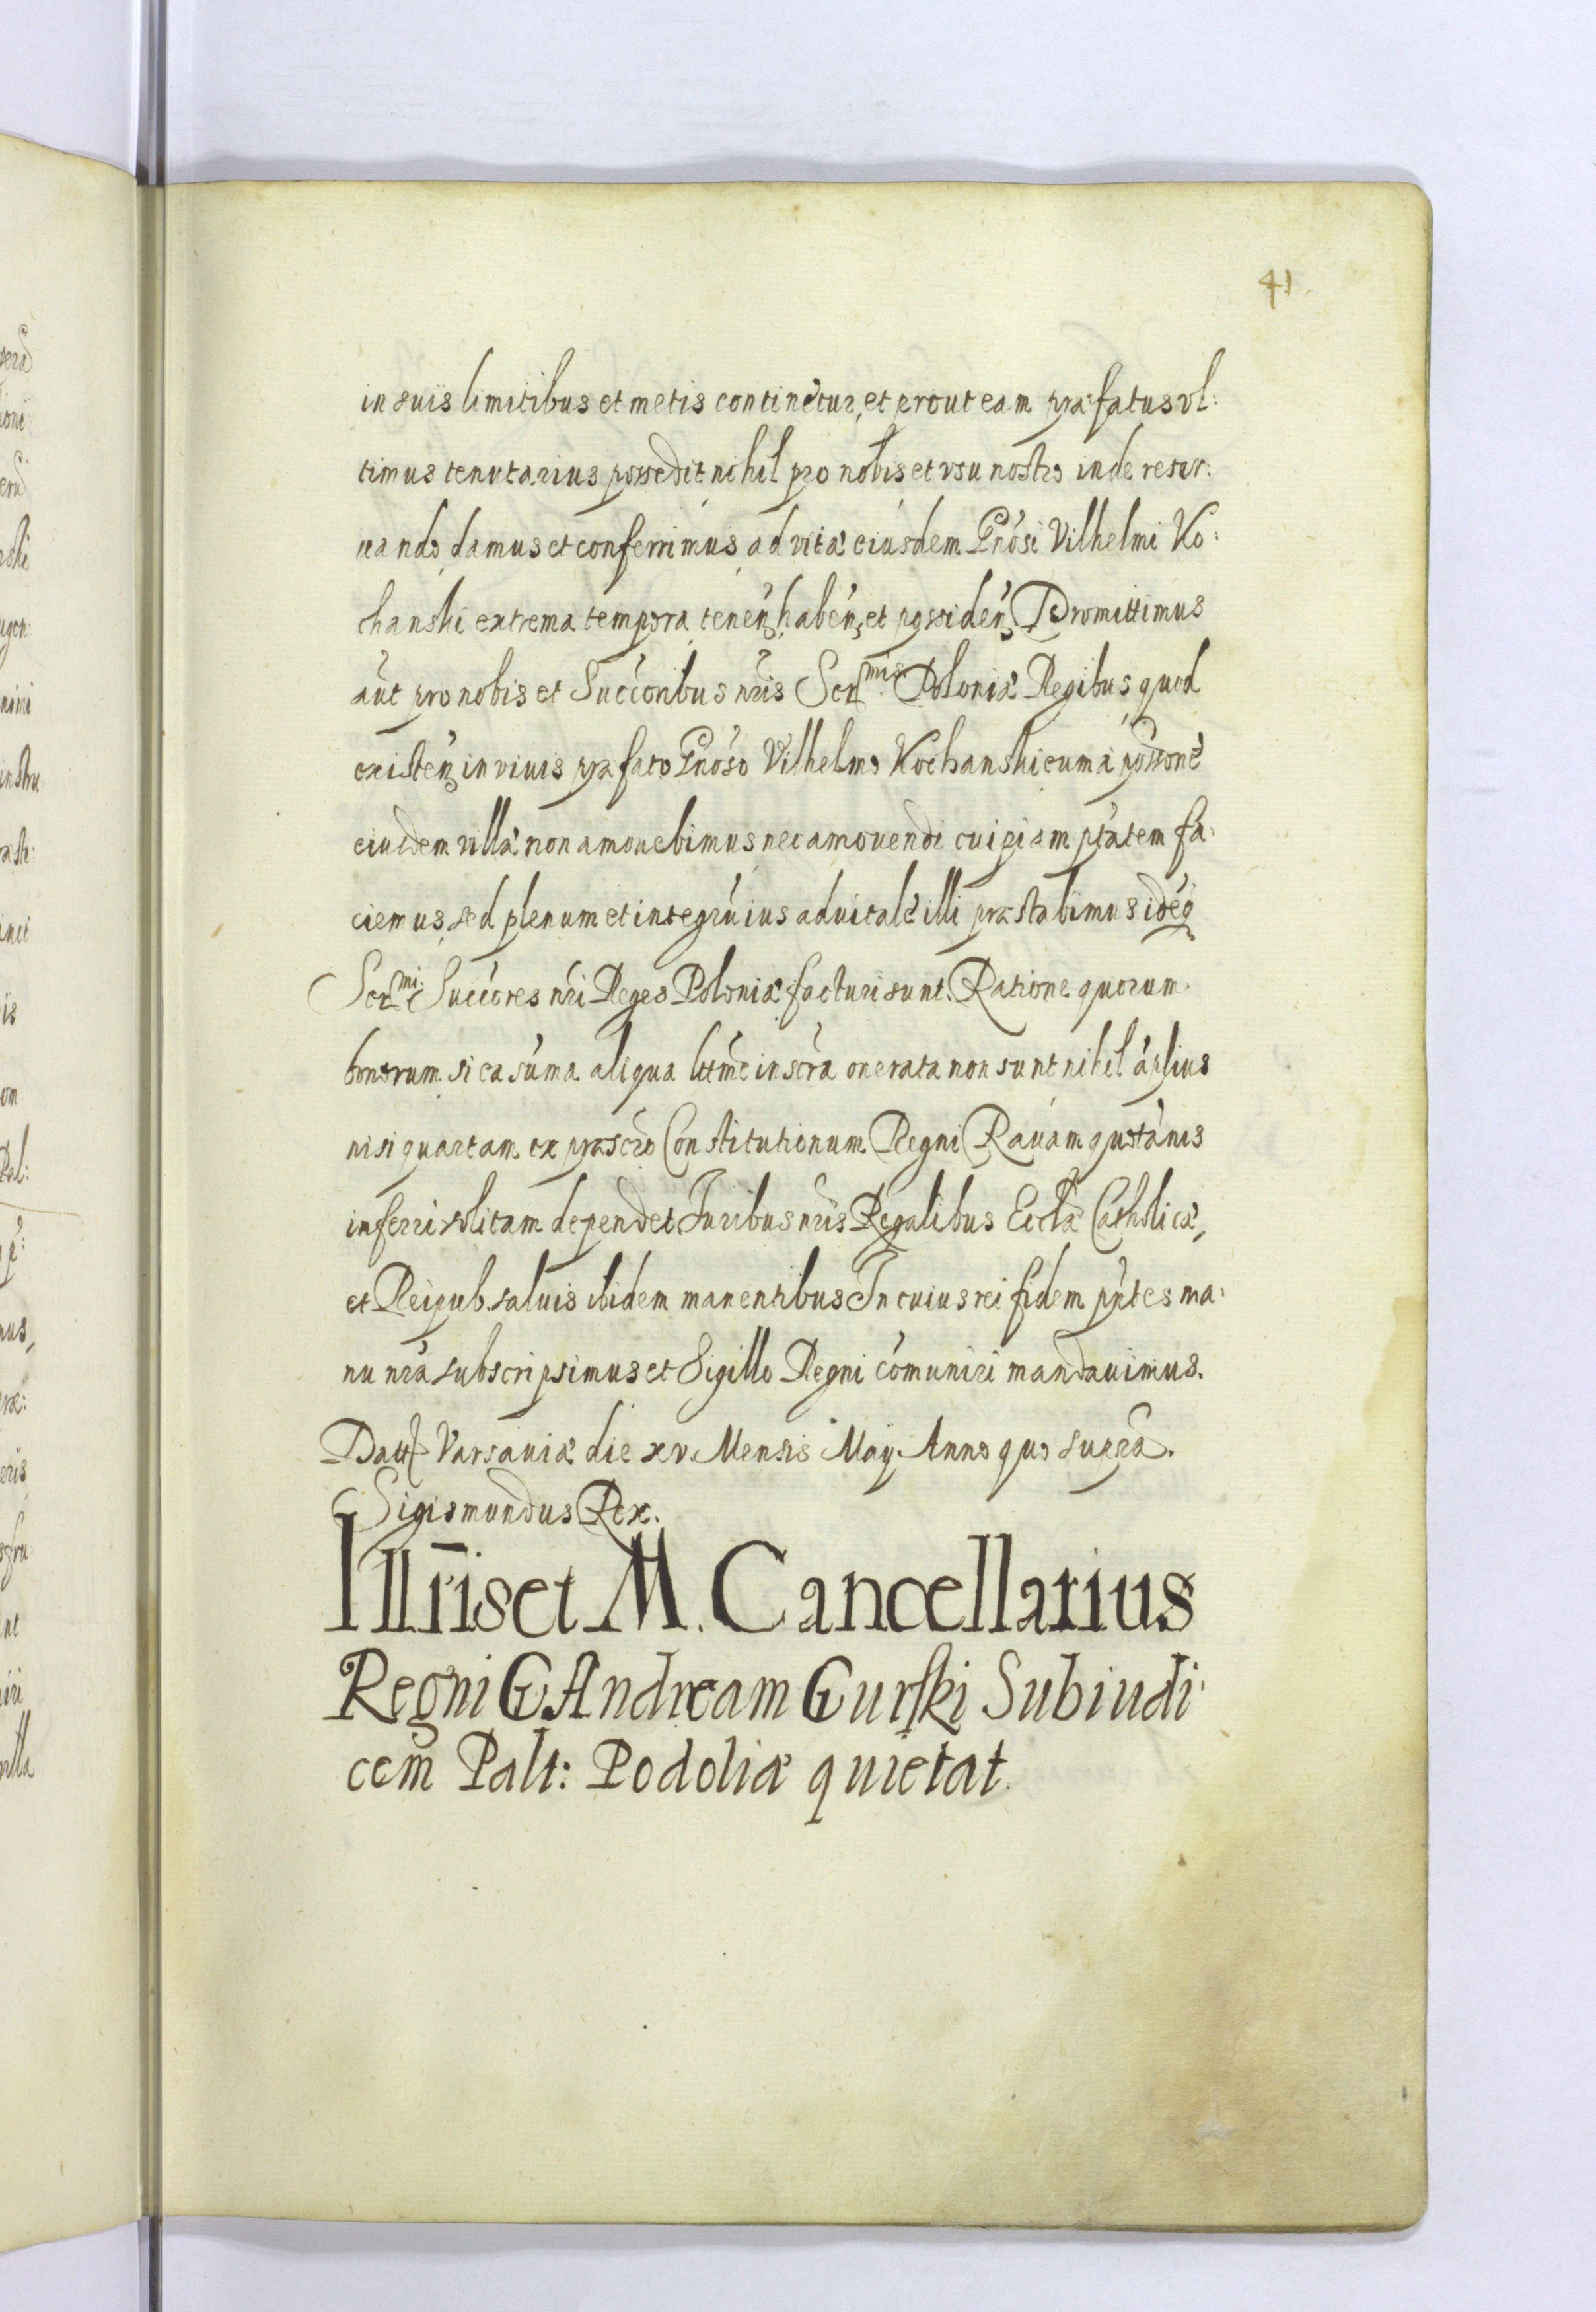 41
in suis limitibus et metis continetur, et prout eam præfatus vl:
timus tenutarius possedit nihil pro nobis et vsu nostro inde reser:
uando damus et conferrimus ad vitæ eiusdem Gnósi Vilhelmi Ko:
chanski extrema tempora tenen, haben, et possiden, Promittimus
aut pro nobis et Succoribus nris Sermis Poloniæ Regibus quod
existen in viuis præfato Gnóso Vilhelmo Kochanski eum á possone
eiusdem villæ non amouebimus nec amouendi cuipiam ptatem fa:
ciemus, sed plenum et integrú ius aduitale illi præstabimus idéq
Sermi Succores nri Reges Poloniæ facturi sunt. Ratione quorum
bonorum si ea súma aliqua lttme inscra onerata non sunt nihil áplius
nisi quartam ex præscro Constitutionum Regni Rauam quotánis
inferri solitam dependet Iuribus nris Regalibus Ecclæ Catholicæ,
et Reipub. saluis ibidem manentibus In cuius rei fidem pntes ma:
nu nrá subscripsimus et Sigillo Regni cómuniri mandauimus.
Datt Varsauiæ die xv. Mensis Maÿ Anno quo supra.
Sigismundus Rex.
Illris et M. Cancellarius
Regni G. Andream Gurski Subiudi
cem Palt: Podoliæ quietat.